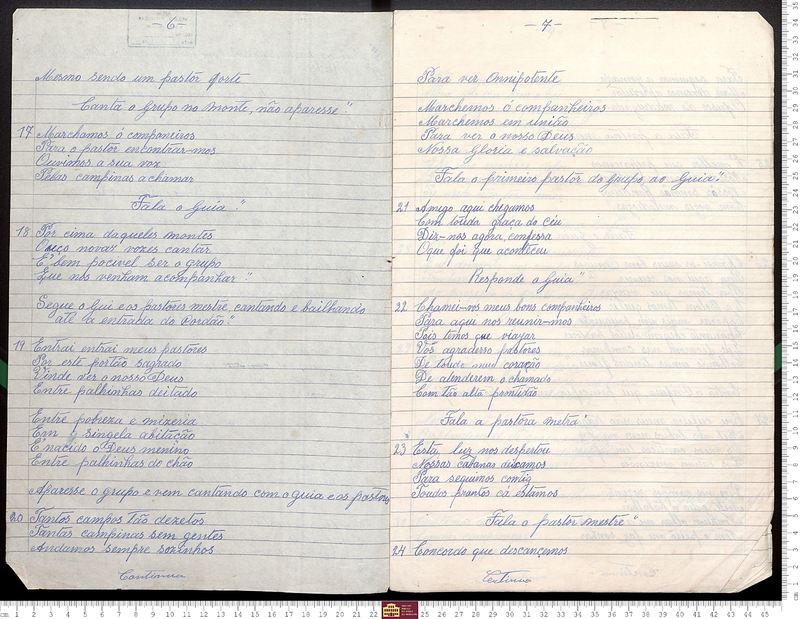 -6-
Mesmo sendo um pastor forte
Canta o Grupo no monte, não aparesse"
17 Marchamos ó componeiros
Para o pastor encontrar-mos
Ouvimos a sua voz
Pelas campinas a chamar
Fala o Guia"
18 Por cima daqueles montes
Oiço novas vozes cantar
E' bem pocivel ser o grupo
Que nos venham acompanhar"
Segue o Gui e os pastores mestre, cantando e bailhando
até a entrada do Portão"
19 Entrai entrai meus pastores
Por este portão sagrado
Vinde ver o nosso Deus
Entre palhinhas deitado
Entre pobreza e mizeria
Em singela abitação
E' nacido o Deus menino
Entre palhinhas do chão
Aparesse o grupo e vem cantando com o guia e os pastores
20 Tantos campos tão dezetos
Tantas campinas sem gentes
Andamos sempre sozinhos
Continua
-7-
Para ver Onnipotente
Marchemos ó companheiros
Marchemos em união
Para ver o nosso Deus
Nossa Gloria e salvação
Fala o primeiro pastor do Grupo, ao Guia"
21 Amigo aqui chegamos
Com touda graça do Céu
Diz-nos agora, confessa
O que foi que aconteceu
Responde o Guia"
22 Chamei-vos meus bons companheiros
Para aqui nos reunir-mos
Pois temos que viajar
Vós agradesso pastores
De toudo meu coração
De atenderem o chamado
Com tão alta
Fala a pastora metra"
23 Esta luz nos despertou
Nossas cabanas deixamos
Para seguimos comtig
Toudos prontos cá estamos
Fala o pastor mestre"
24 Concordo que descançemos
Continua